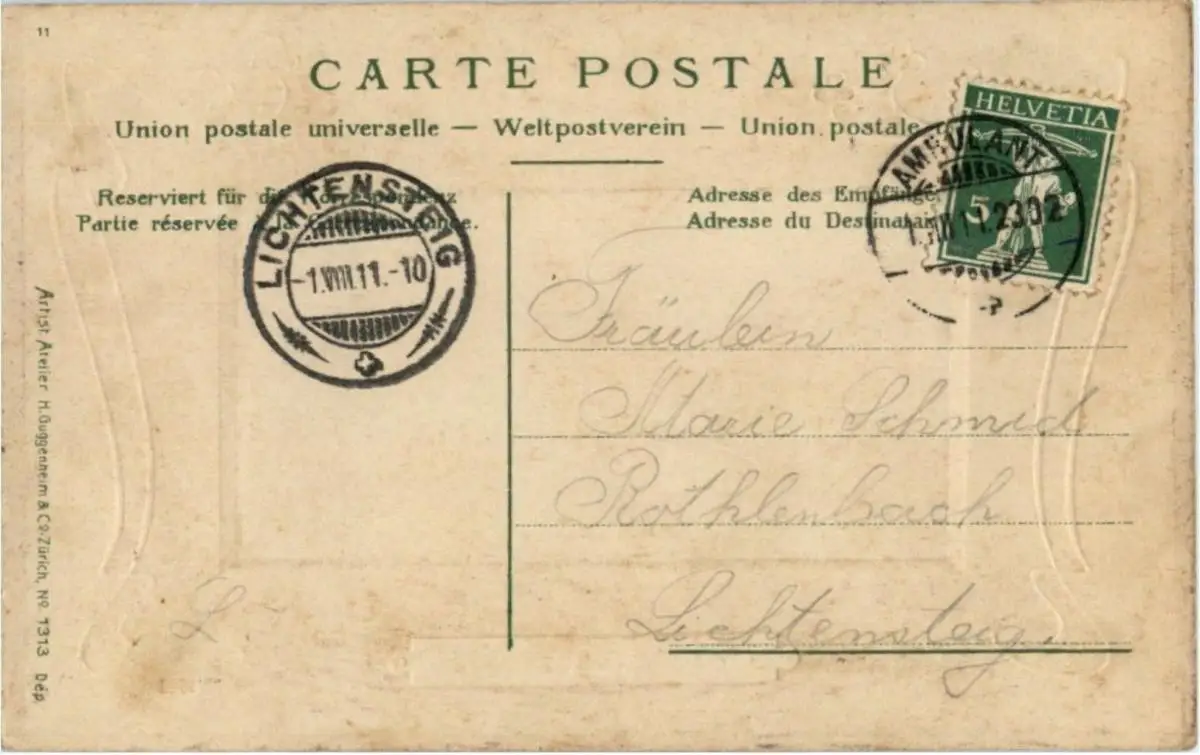 11
CARTE POSTALE
Union postale universelle — Weltpostverein — Union postale
Reserviert für die Korrespondenz
Partie réservée à la Correspondance.
Adresse des Empfänge
Adresse du Destinatai
HELVETIA
5
AMBULANT
1.VIII 11.2302
LICHTENSTEIG
-1.VIII.11.-10
Fräulein
Marie Schmid
Rothlenbach
Lichtensteig.
L
Artist. Atelier H.Guggenheim & Co., Zürich, No 1313 Dép